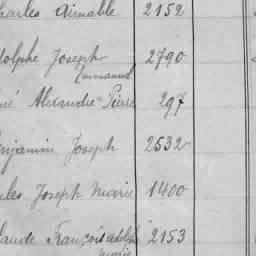 harles Aimable 2152
dolphe Joseph 2790
Emmanuel
né Alexandre Pierre 297
enjamin Joseph 2532
ules Joseph Marie 1400
laude François Adolph 2153
Marie